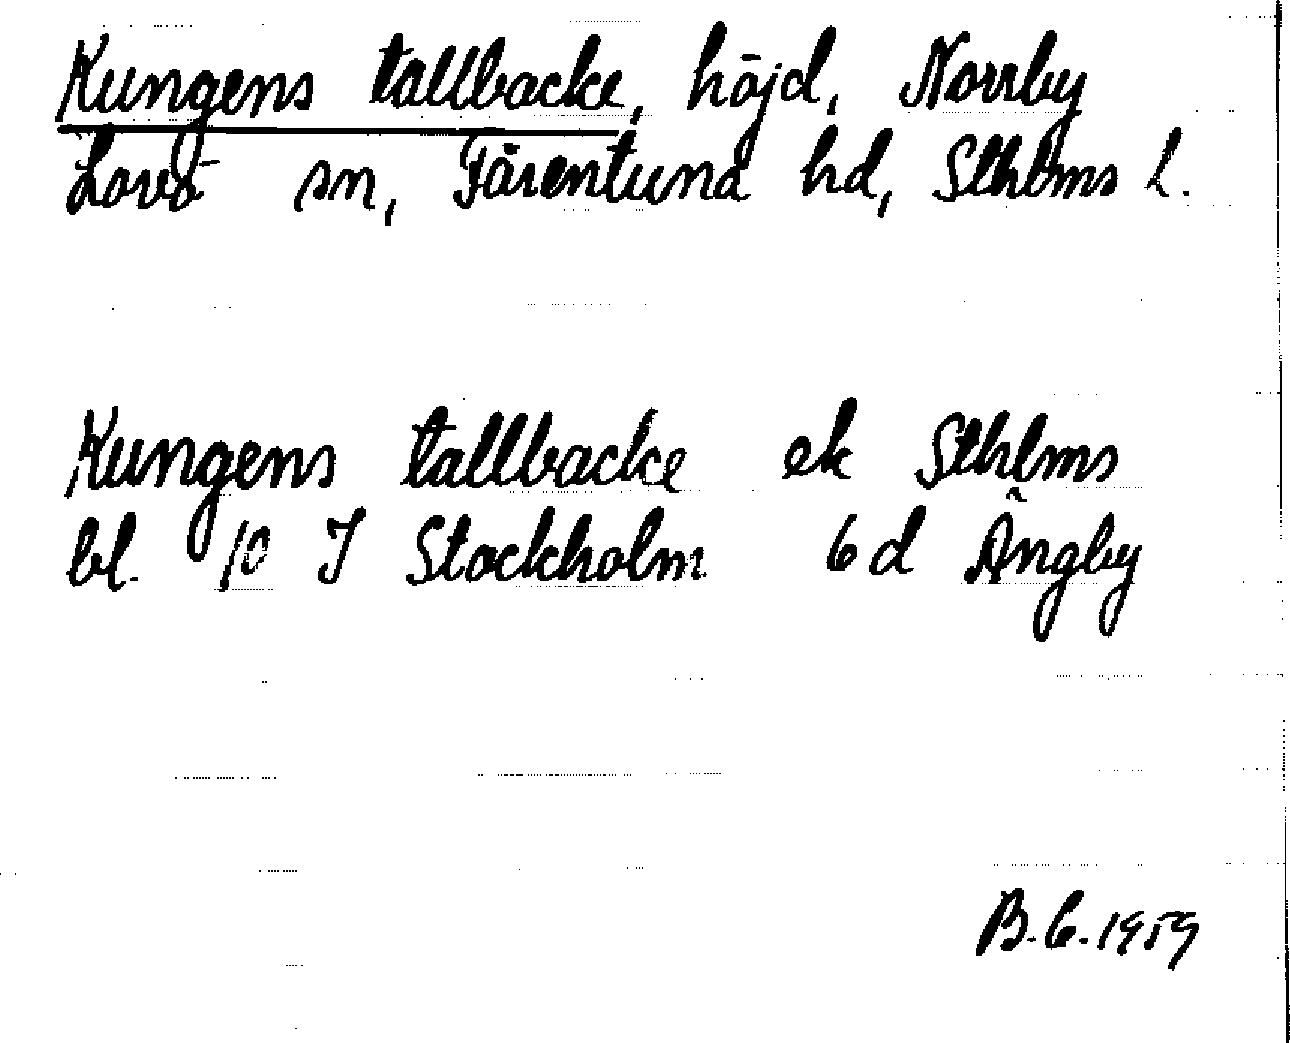 Kungens tallbacke, höjd, Norrby
Lovö sn, Färentuna hd, Sthlms l.
Kungens tallbacke ek Sthlms
bl. 10 I Stockholm 6d Ängby
B.C. 1959